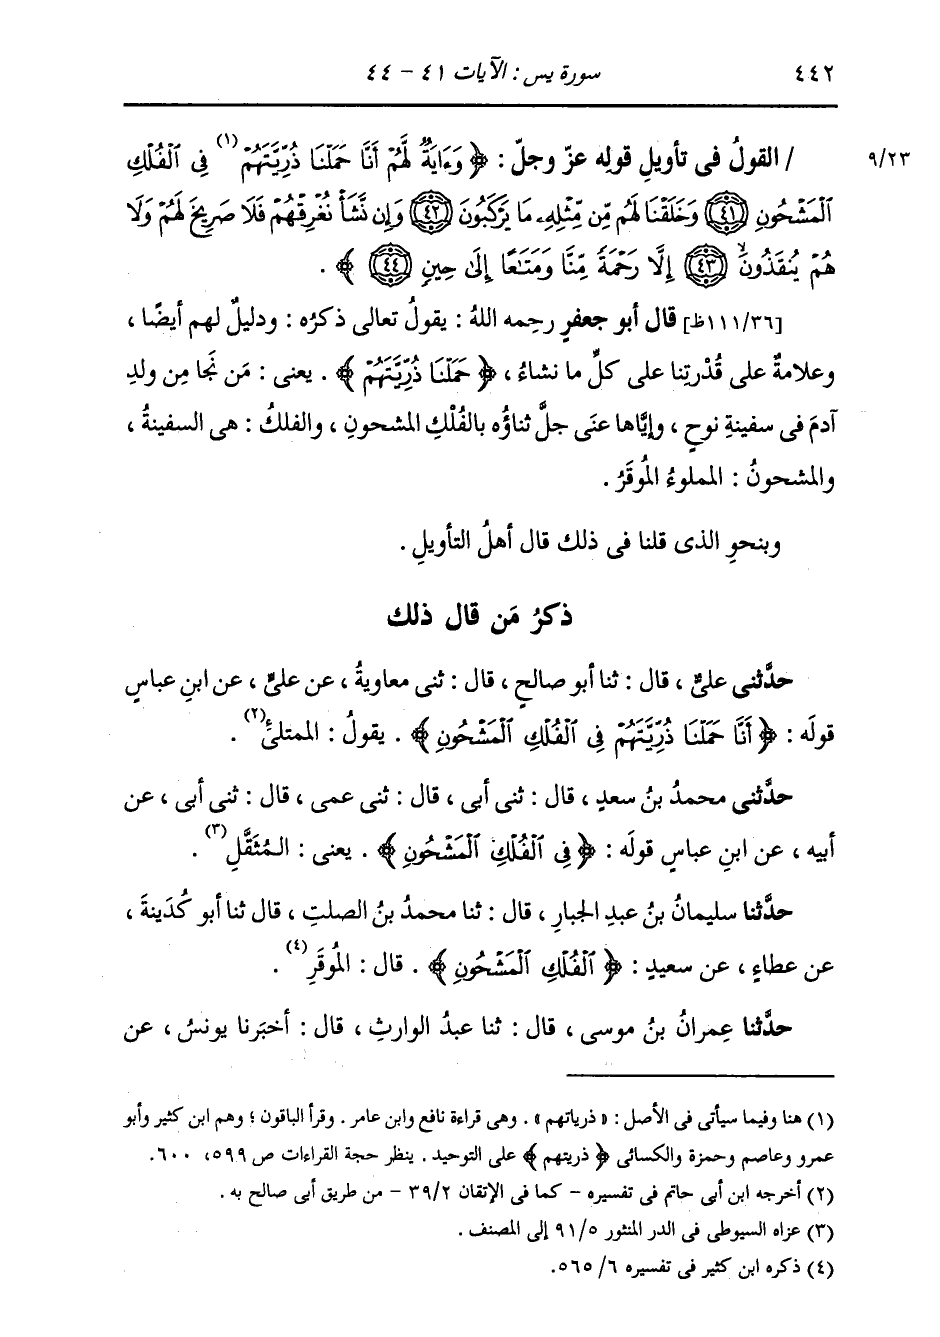 ٤٤٢ سورة يس : الآيات ٤١ - ٤٤
٩/٢٣ / القولُ فى تأويلِ قولِه عزّ وجلّ : ﴿ وَءَايَةٌ لَّهُمْ أَنَّا حَمَلْنَا ذُرِّيَّتَهُمْ(١) فِى ٱلْفُلْكِ
ٱلْمَشْحُونِ ﴿٤١﴾ وَخَلَقْنَا لَهُم مِّن مِّثْلِهِۦ مَا يَرْكَبُونَ ﴿٤٢﴾ وَإِن نَّشَأْ نُغْرِقْهُمْ فَلَا صَرِيخَ لَهُمْ وَلَا
هُمْ يُنقَذُونَ ۙ ﴿٤٣﴾ إِلَّا رَحْمَةً مِّنَّا وَمَتَٰعًا إِلَىٰ حِينٍ ﴿٤٤﴾ ﴾ .
[١١١/٣٦ظ] قال أبو جعفرٍ رحِمه اللهُ : يقولُ تعالى ذكرُه : ودليلٌ لهم أيضًا ،
وعلامةٌ على قُدْرتِنا على كلِّ ما نشاءُ ، ﴿ حَمَلْنَا ذُرِّيَّتَهُمْ ﴾ . يعنى : مَن نَجا مِن ولدِ
آدمَ فى سفينةِ نوحٍ ، وإيَّاها عنَى جلَّ ثناؤُه بالفُلْكِ المشحونِ ، والفلكُ : هى السفينةُ ،
والمشحونُ : المملوءُ المُوقَرُ .
وبنحوِ الذى قلنا فى ذلك قال أهلُ التأويلِ .
ذكرُ مَن قال ذلك
حدَّثنى علىٌّ ، قال : ثنا أبو صالحٍ ، قال : ثنى معاويةُ ، عن علىٍّ ، عن ابنِ عباسٍ
قولَه : ﴿ أَنَّا حَمَلْنَا ذُرِّيَّتَهُمْ فِى ٱلْفُلْكِ ٱلْمَشْحُونِ ﴾ . يقولُ : الممتلئِ(٢) .
حدَّثنى محمدُ بنُ سعدٍ ، قال : ثنى أبى ، قال : ثنى عمى ، قال : ثنى أبى ، عن
أبيه ، عن ابنِ عباسٍ قولَه : ﴿ فِى ٱلْفُلْكِ ٱلْمَشْحُونِ ﴾ . يعنى : المُثقَّلِ(٣) .
حدَّثنا سليمانُ بنُ عبدِ الجبارِ ، قال : ثنا محمدُ بنُ الصلتِ ، قال ثنا أبو كُدَينةَ ،
عن عطاءٍ ، عن سعيدٍ : ﴿ ٱلْفُلْكِ ٱلْمَشْحُونِ ﴾ . قال : المُوقَرِ(٤) .
حدَّثنا عِمرانُ بنُ موسى ، قال : ثنا عبدُ الوارثِ ، قال : أخبَرنا يونسُ ، عن
(١) هنا وفيما سيأتى فى الأصل : « ذرياتهم » . وهى قراءة نافع وابن عامر . وقرأ الباقون ؛ وهم ابن كثير وأبو
عمرو وعاصم وحمزة والكسائى ﴿ ذريتهم ﴾ على التوحيد . ينظر حجة القراءات ص ٥٩٩، ٦٠٠.
(٢) أخرجه ابن أبى حاتم فى تفسيره - كما فى الإتقان ٣٩/٢ - من طريق أبى صالح به .
(٣) عزاه السيوطى فى الدر المنثور ٩١/٥ إلى المصنف .
(٤) ذكره ابن كثير فى تفسيره ٦/ ٥٦٥.